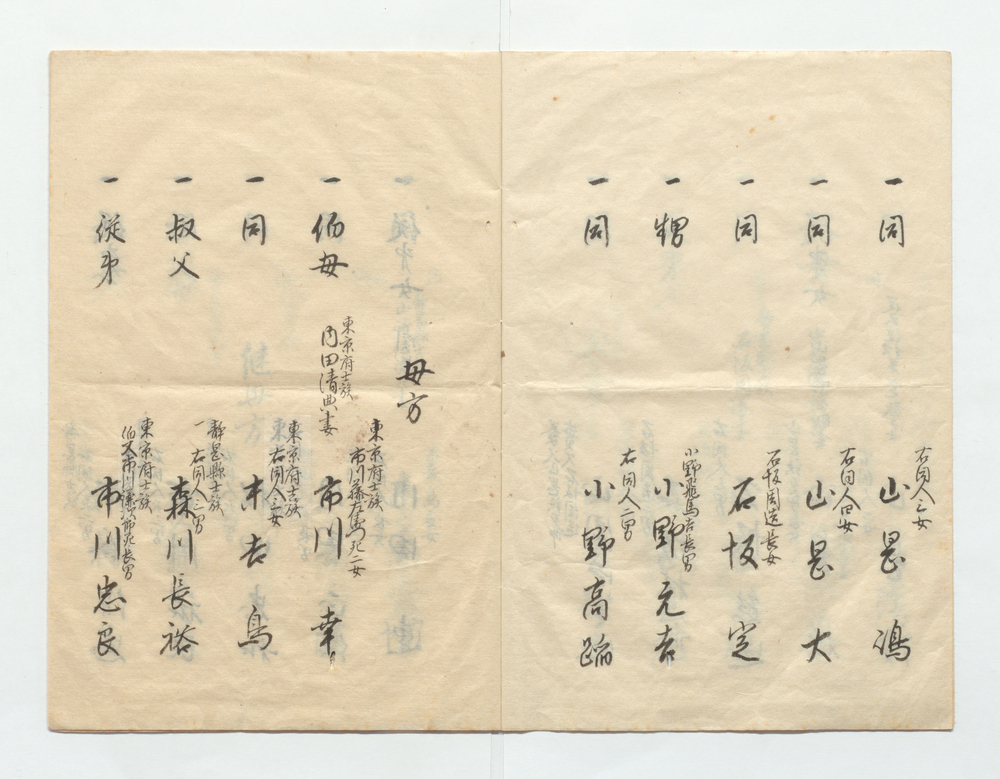 一 同 右同人三女 山邑 鴻
一 同 右同人四女 山邑 大
一 同 石坂周造長女 石坂 定
一 甥 小野飛馬吉長男 小野元吉
一 同 右同人二男 小野高蹈
母方
一 伯母 東京府士族 市川藤左衛門死二女 市川 幸
東京府士族 内田清典妻
一 同 東京府士族 右同人三女 木吉 鳥
一 叔父 静岡縣士族 右同人二男 森川長裕
一 従弟 東京府士族 伯父市川 死長男 市川忠良